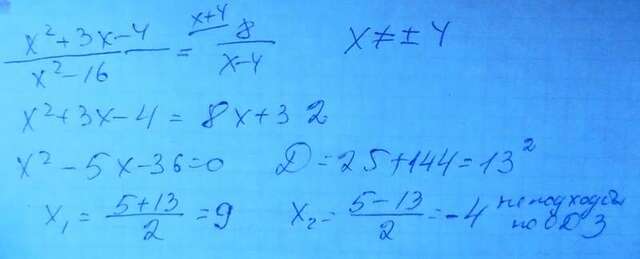 (x²+3x-4)/(x²-16) = 8/(x-4) x+4 x≠±4
x²+3x-4=8x+32
x²-5x-36=0 D=25+144=13²
x₁=(5+13)/2=9 x₂=(5-13)/2=-4 не подходит по ОДЗ